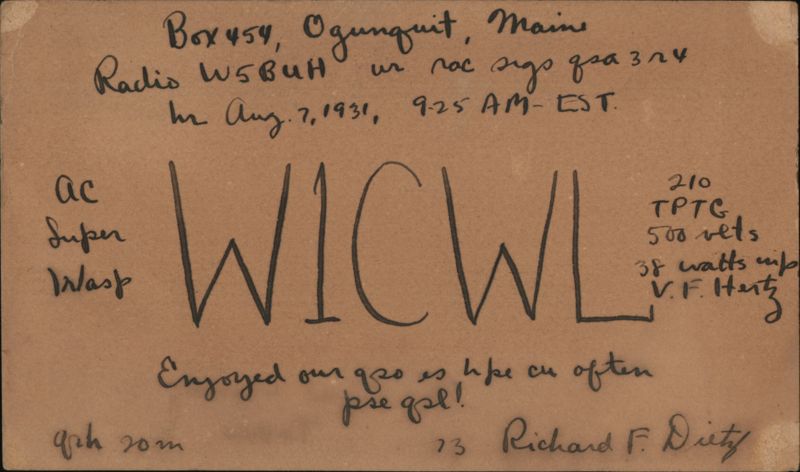 Box 454, Ogunquit, Maine
Radio W5BUH ur rac sigs qsa 3 r 4
hr Aug. 7, 1931, 9-25 AM - EST.
AC
Super
Wasp
W1CWL
210
TPTG
500 volts
38 watts inp
V. F. Hertz
Enjoyed our qso es hpe cu often
pse qsl!
qrh 20m
73 Richard F. Dietz